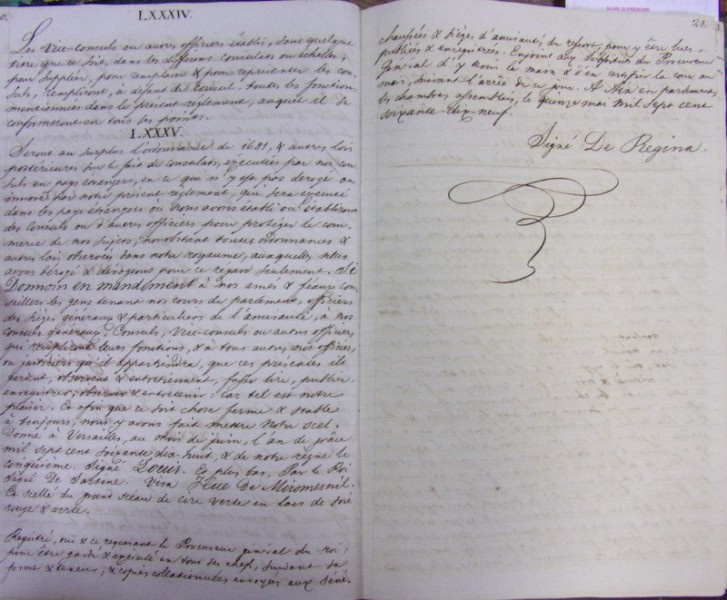 LXXXIV.
Les Vice-consuls ou autres officiers établis, sous quelque
titre que ce soit, dans les différens consulats ou échelles,
pour suppléer, pour remplacer & pour représenter les con-
suls, rempliront, à défaut du Consul, toutes les fonctions
mentionnées dans le présent réglement, auquel il se
conformeront en tous les points.
LXXXV.
Sera au surplus l'ordonnance de 1681, & autres lois
postérieures sur le fait de consulats, exécutées par nos con-
suls en pays étrangers, en ce qui n'y est pas dérogé ou
innové par notre présent réglement, qui sera exécuté
dans les pays étrangers où Nous avons établi ou établirons
des Consuls ou d'autres officiers pour protéger le com-
merce de nos sujets, nonobstant toutes ordonnances &
autres lois observées dans notre royaume, auxquelles nous
avons dérogé & dérogeons pour ce regard seulement. Si
Donnons en mandement à nos amés & féaux con-
seillers les gens tenant nos cours de parlement, officiers
des sièges généraux & particuliers de l'amirauté, à nos
consuls généraux, Consuls, Vice-consuls ou autres officiers,
qui rempliront leurs fonctions, & à tous autres nos officiers,
ou justiciers qu'il appartiendra, que ces présentes ils
gardent, observent & entretiennent, fassent lire, publier,
enregistrer, observer & entretenir car tel est notre
plaisir. Et afin que ce soit chose ferme & stable
à toujours, nous y avons fait mettre Notre scel.
Donné à Versailles, au mois de juin, l'an de grâce
mil sept cent soixante dix-huit, & de notre règne le
cinquième. Signé Louis. Et plus bas, Par le Roi
signé De Sartine. Visa Hue De Miromesnil.
Et scellé du grand sceau de cire verte en lacs de soie
rouge & verte.
Registré, oui & ce requerant le Procureur général du roi,
pour être gardé & exécuté en tous ses chefs, suivant sa
forme & teneur, & copies collationnées envoyées aux séné-
21.
chaussées & sièges d'amirautés, du ressort, pour y être lues,
publiées & enregistrées. Enjoint aux Substituts du Procureur
Général d'y tenir la main & d'en certifier la cour au
mois, suivant l'arrêt de ce jour. A Aix en parlement,
les chambres assemblées, le quinze mai mil sept cent
soixante dix-neuf.
Signé De Regina.